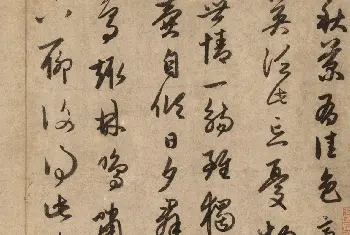 秋菊有佳色
英泛此忘憂
世情一觴雖獨
壺自傾日夕群
鳥趨林鳴嘯
下聊復得此